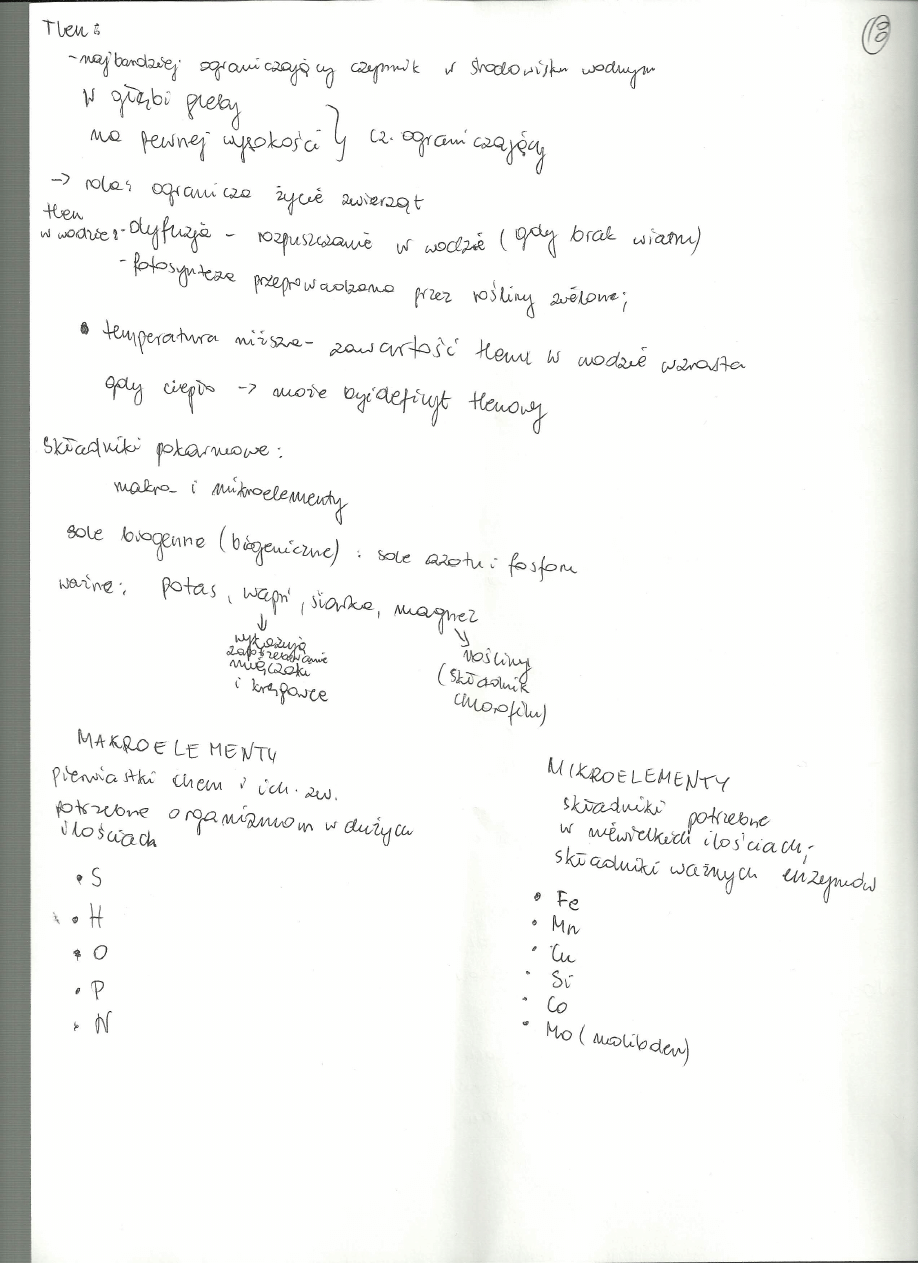 13
Tlen:
- najbardziej ograniczający czynnik w środowisku wodnym
w głębi gleby
na pewnej wysokości } cz. ograniczający
→ rola: ogranicza życie zwierząt
tlen
w wodzie: - dyfuzja - rozpuszczanie w wodzie (gdy brak wiatru)
- fotosynteza przeprowadzana przez rośliny zielone;
• temperatura niższa - zawartość tlenu w wodzie wzrasta
gdy ciepło → może być deficyt tlenowy
Składniki pokarmowe:
makro- i mikroelementy
sole biogenne (biogeniczne): sole azotu i fosforu
ważne: potas, wapń, siarka, magnez
↓ ↘
wykazują
zapotrzebowanie
mięczaki
i kręgowce
rośliny
(składnik
chlorofilu)
MAKROELEMENTY
pierwiastki chem i ich zw.
potrzebne organizmom w dużych
ilościach
• S
• H
• O
• P
• N
MIKROELEMENTY
składniki potrzebne
w niewielkich ilościach;
składniki ważnych enzymów
• Fe
• Mn
• Cu
• Si
• Co
• Mo (molibden)